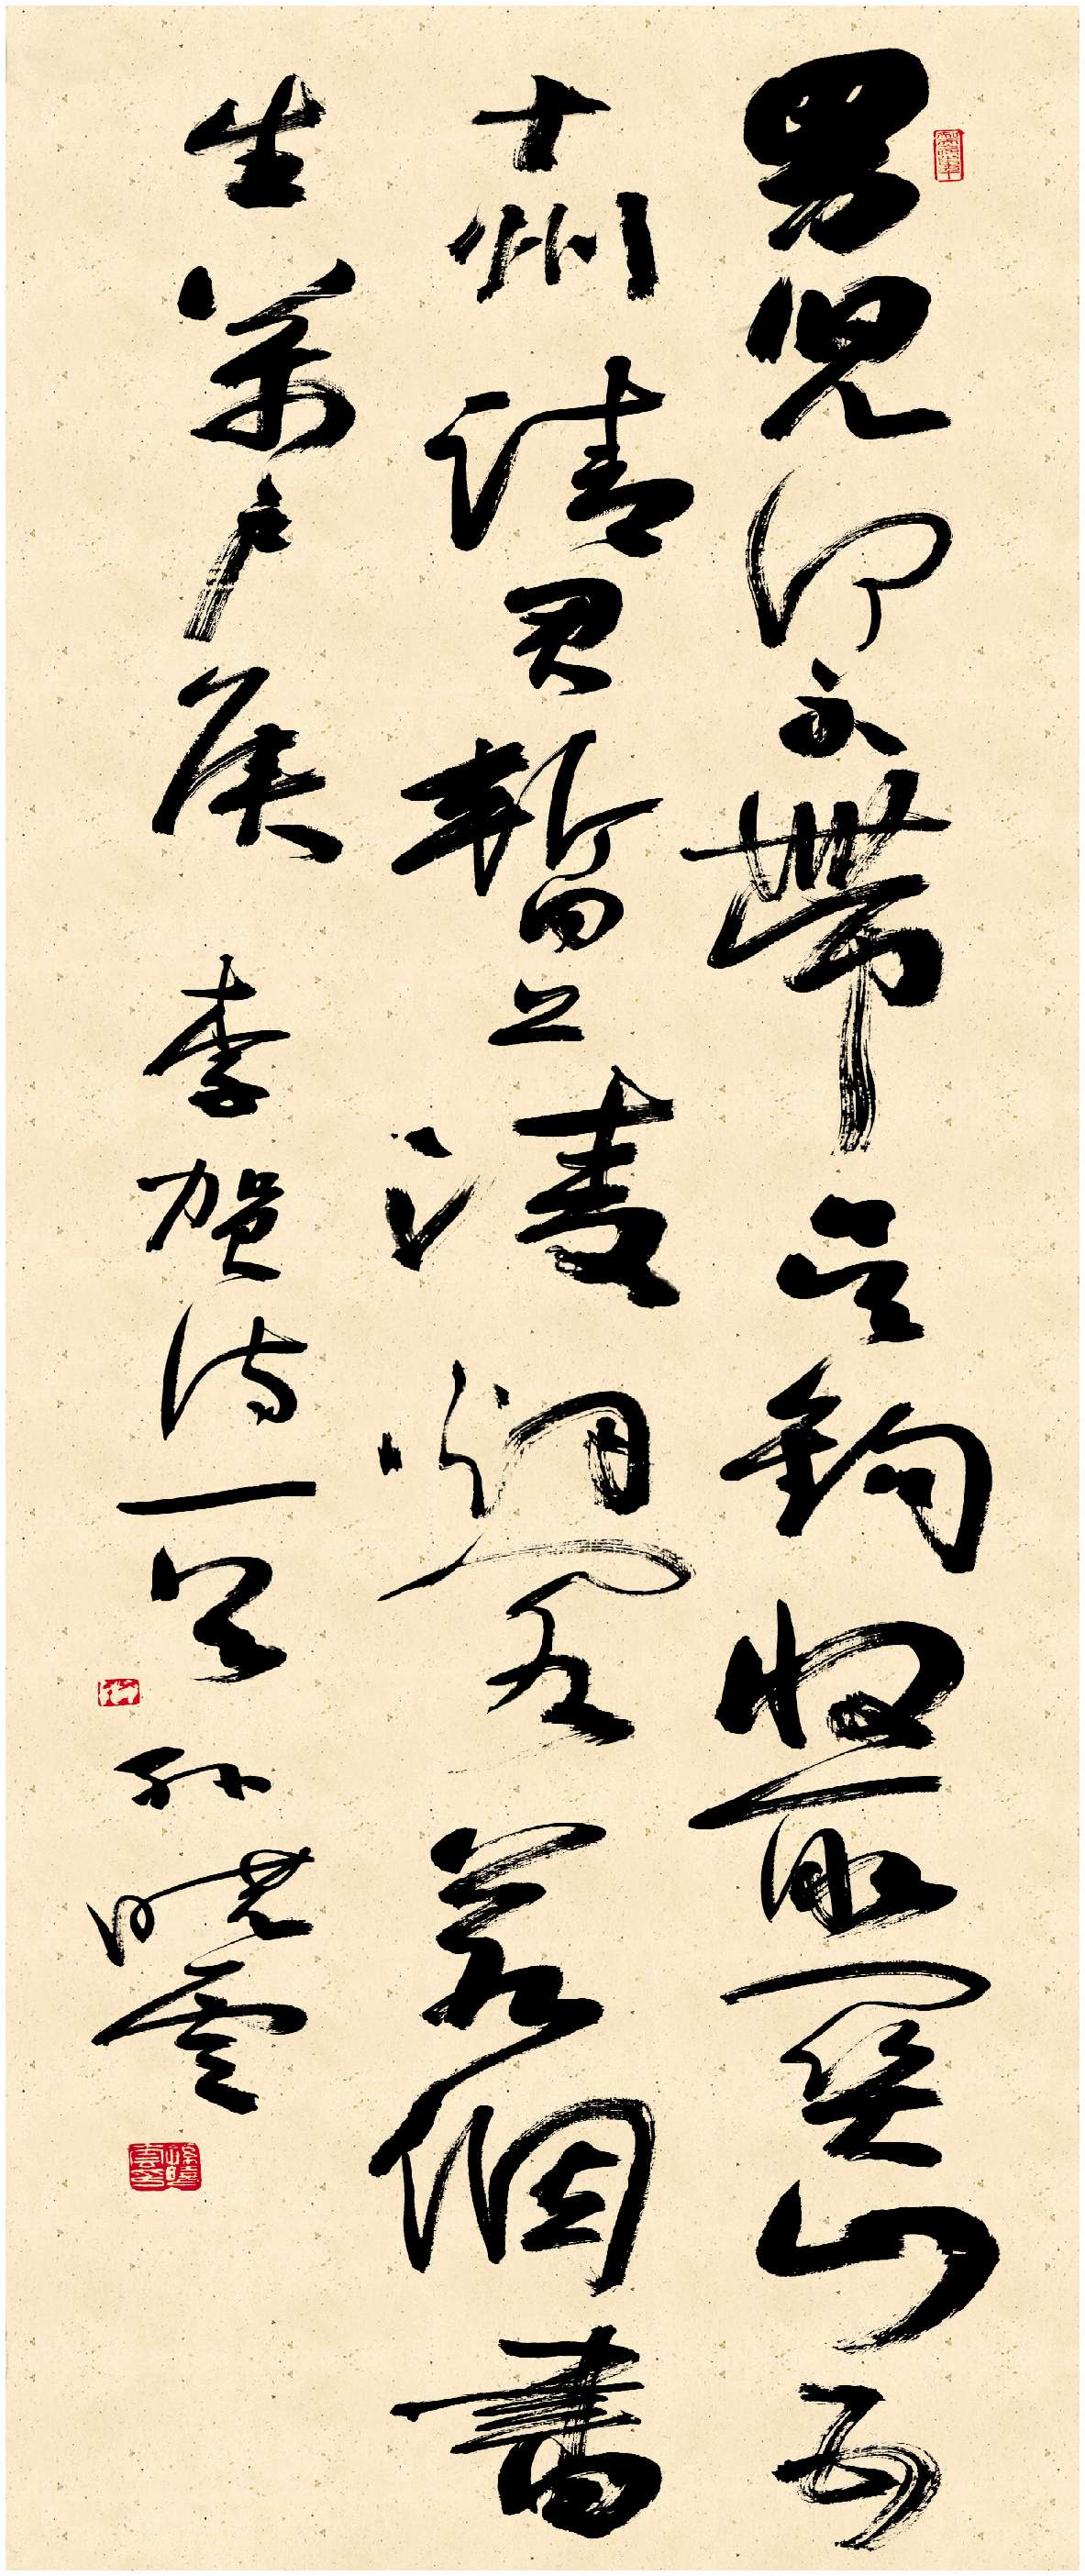 男兒何不帶吳鉤收取關山五
十州請君暫上凌煙閣若個書
生萬户侯 李賀詩一首
孫曉雲